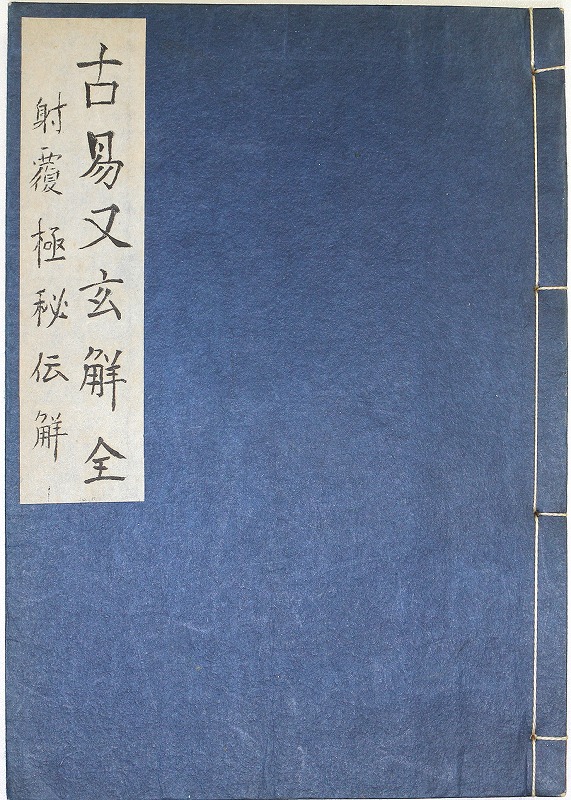 古易又玄解 全
射覆極秘伝解